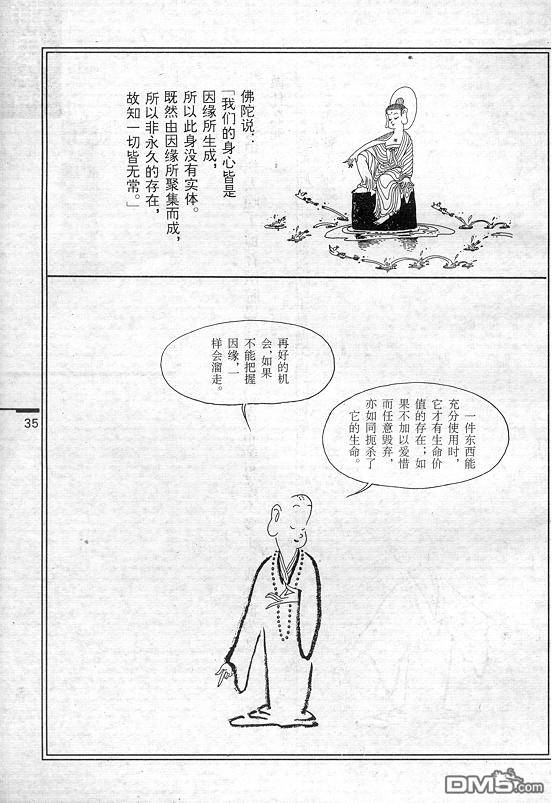 佛陀说：
「我们的身心皆是
因缘所生成，
所以此身没有实体。
既然由因缘所聚集而成，
所以非永久的存在，
故知一切皆无常。」
一件东西能
充分使用时，
它才有生命价
值的存在；如
果不加以爱惜
而任意毁弃，
亦如同扼杀了
它的生命。
再好的机
会，如果
不能把握
因缘，一
样会溜走。
35
DM5.com